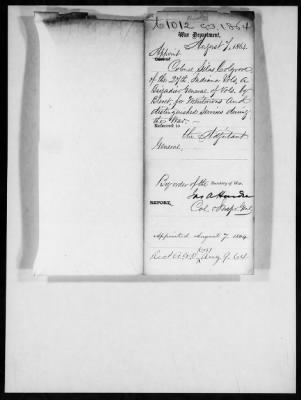 C 1012 CB. 1864
War Department,
August 7, 1864
Appoint
Colonel Silas Colgrove
of the 27th Indiana Vols, a
Brigadier General of Vols. by
Brevet, for Meritorious and
distinguished Services during
the War.—
Referred to
the Adjutant
General.
By order of the Secretary of War.
REPORT.
Jas A Hardie
Col. & Insp. Genl.
Appointed August 7. 1864
Rec'd Aug 9. 64